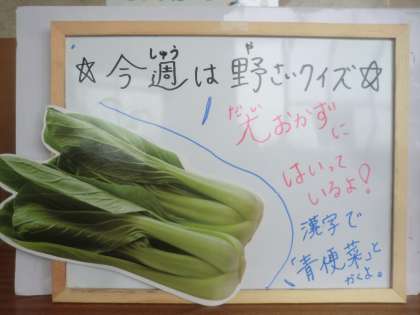 ☆今週は野さいクイズ☆
しゅう
や
おかずに
はいって
いるよ!
漢字で
「青梗菜」と
かくよ。